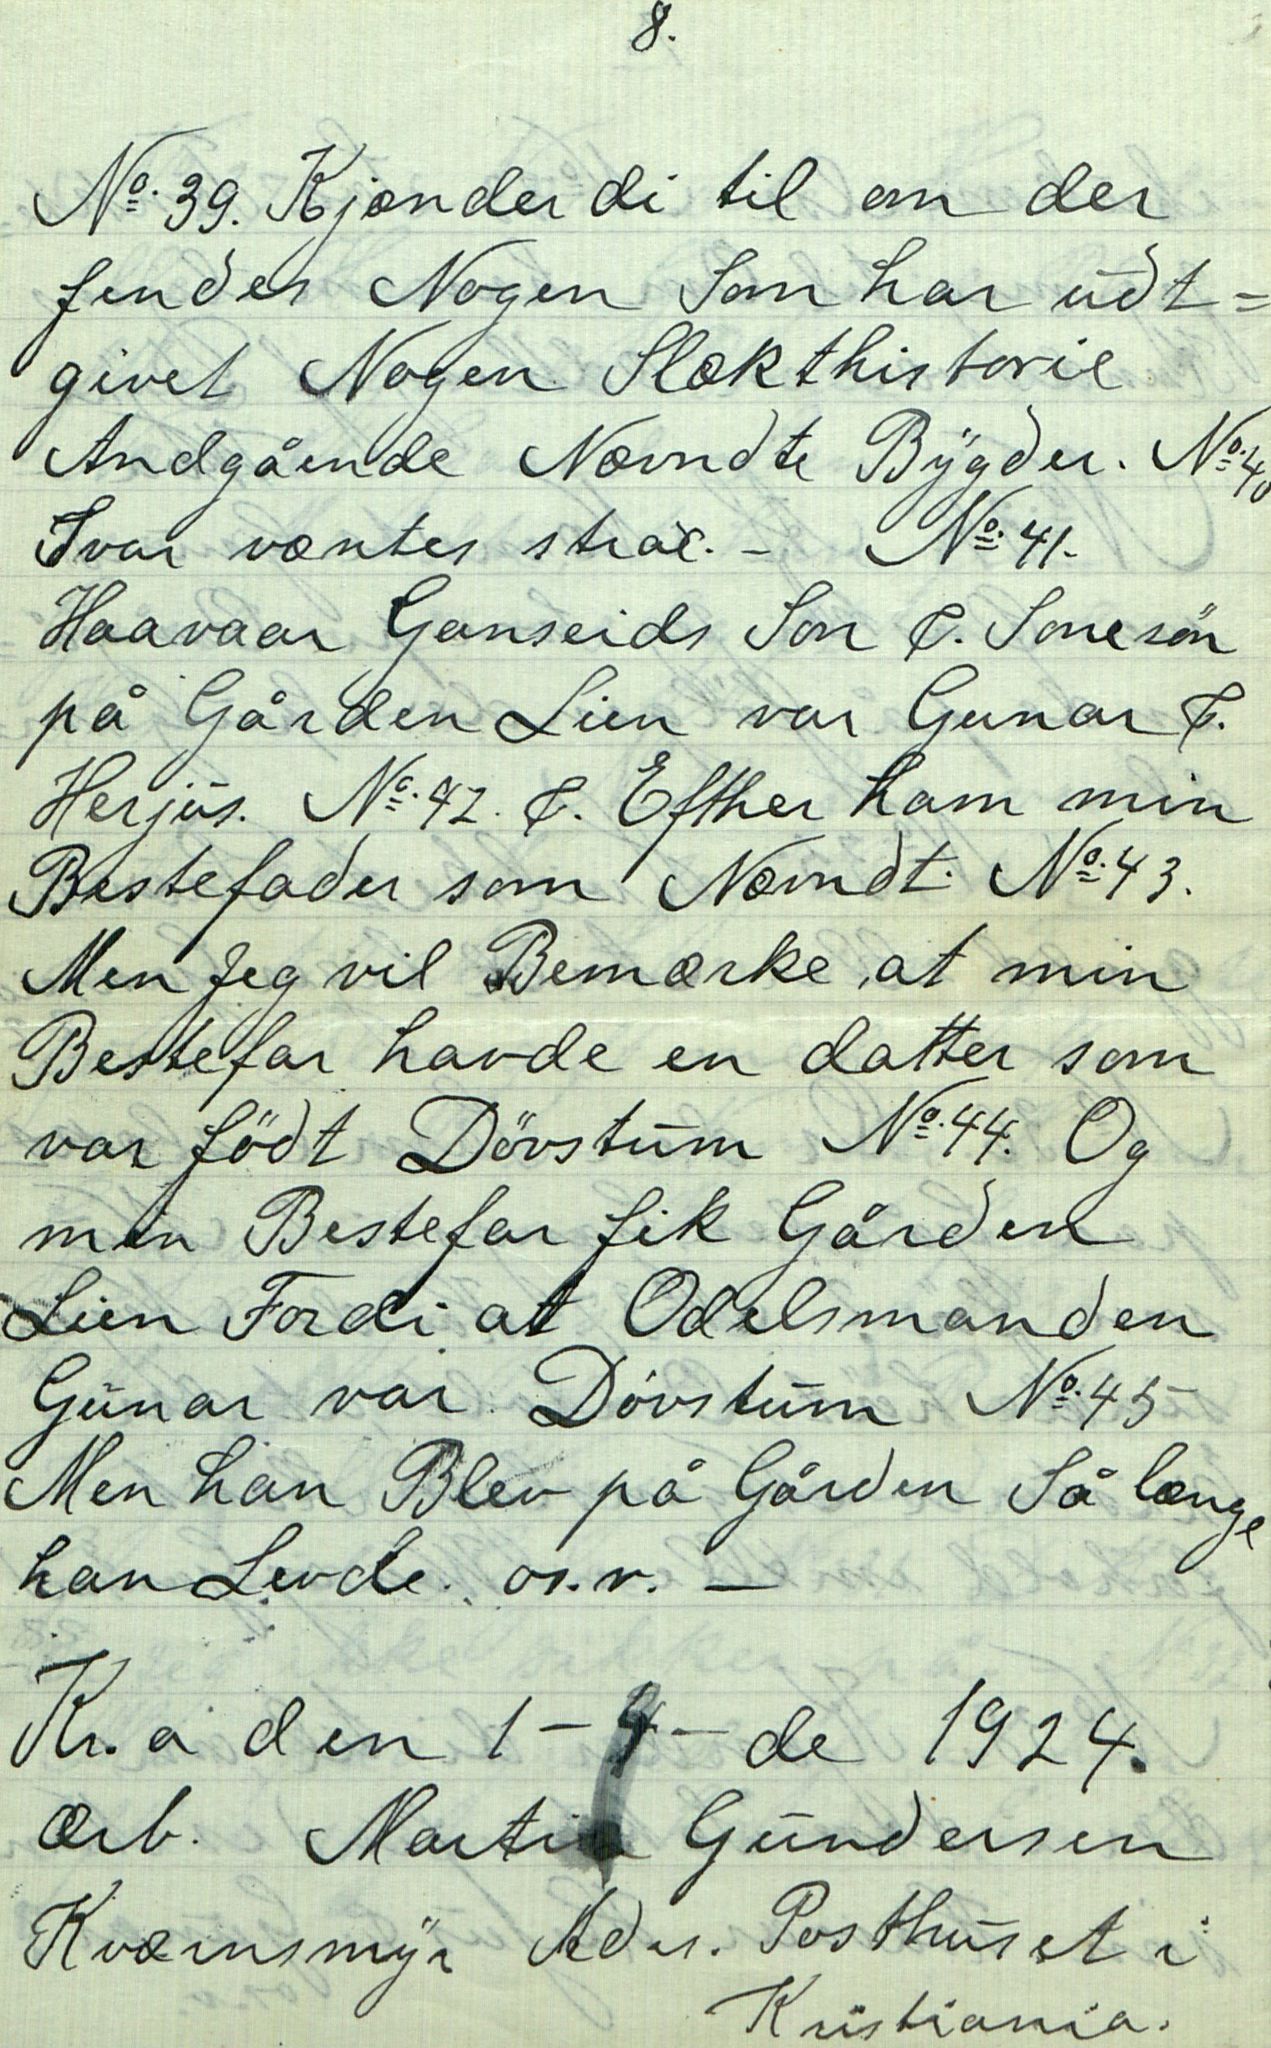 8.
No. 39. Kjænder di til om der
findes Nogen Som har udt=
givet Nogen Slækthistorie
Andgående Nævndte Bygder. No. 40
Svar væntes strax. - No. 41.
Haavaar Ganseids Søn &. Sønesön
på Gården Lien var Gunar &.
Herjus. No. 42. &. Efther ham min
Bestefader som Nævndt. No. 43.
Men Jeg vil Bemærke, at min
Bestefar havde en datter som
var födt Dövstum No. 44. Og
min Bestefar fik Gården
Lien Fordi at Odelsmanden
Gunar var Dövstum No. 45
Men han Blev på Gården Så længe
han Levde. os.v. —
Kr.a den 1 - 4 - de 1924.
Ærb. Martin Gundersen
Kværnsmyr Adr. Posthuset i
Kristiania.